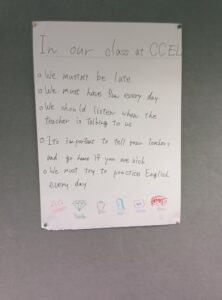 In our class at CCEL
We mustn't be late
We must have fun every day
We should listen when the
teacher is talking to us
It's important to tell your teacher,
and go home if you are sick
We must try to practice English
every day